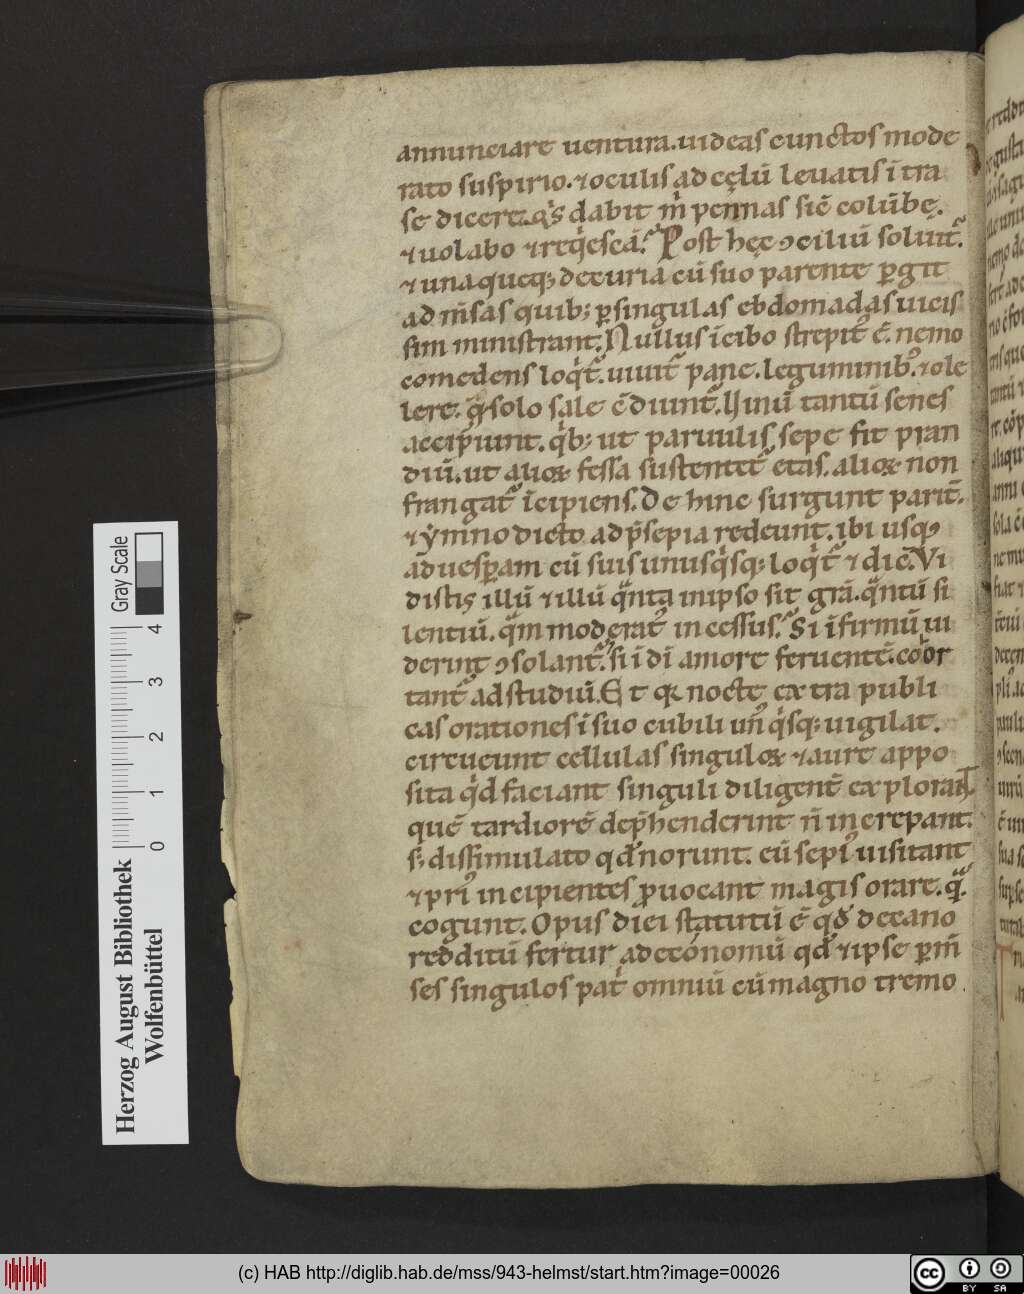 annunciare uentura. uideas cunctos mode
rato suspirio. ⁊ oculis ad cęlū leuatis ī tra
se dicere. q̇s dabit ṁ pennas sic̄ colūbę.
⁊ uolabo ⁊ req̇escā. Post hęc ꝯciliū soluit᷑.
⁊ unaqueq; decuria cū suo parente ꝑgit
ad m̄sas quib; ꝑ singulas ebdomadas uicis
sim ministrant. Nullus ī cibo strepit᷑ ē. nemo
comedens loq̇t᷑. uiuit᷑ pane. leguminib᷑. ⁊ ole
lere. q̄ solo sale c̄diunt᷑. Uinū tantū senes
accipiunt. q̇b; ut paruulis sepe fit pran
diū. ut alioꝝ fessa sustentet᷑ etas. alioꝝ non
frangat᷑ īcipiens. De hinc surgunt parit̄.
⁊ ẏmno dicto ad p̄sepia redeunt. ibi usq;
ad uesꝑam cū suis unusq̇sq; loq̇t᷑ ⁊ dic̄. Vi
distis illū ⁊ illū q̄nta in ipso sit grā. q̄ntū si
lentiū. q̄m moderat᷑ incessus. Si īfirmū ui
derint ꝯsolant᷑. si ī dī amore feruentē. cohor
tant᷑ ad studiū. Et qꝛ nocte extra publi
cas orationes ī suo cubili un᷑ q̇sq; uigilat.
circueunt cellulas singuloꝝ ⁊ aure appo
sita q̇d faciant singuli diligent̄ explorant.
quē tardiorē dep̄henderint n̄ increpant.
s; dissimulato qd̄ norunt. cū sepi᷑ uisitant
⁊ pri᷑ incipientes ꝓuocant magis orare. q̄
cogunt. Opus diei statutū ē qd̄ decano
redditū fertur ad ecónomū qd̄ ⁊ ipse ꝑ m̄
ses singulos pat̄ omniū cū magno tremo
Herzog August Bibliothek
Wolfenbüttel
Gray Scale
0 1 2 3 4
(c) HAB http://diglib.hab.de/mss/943-helmst/start.htm?image=00026
cc BY SA